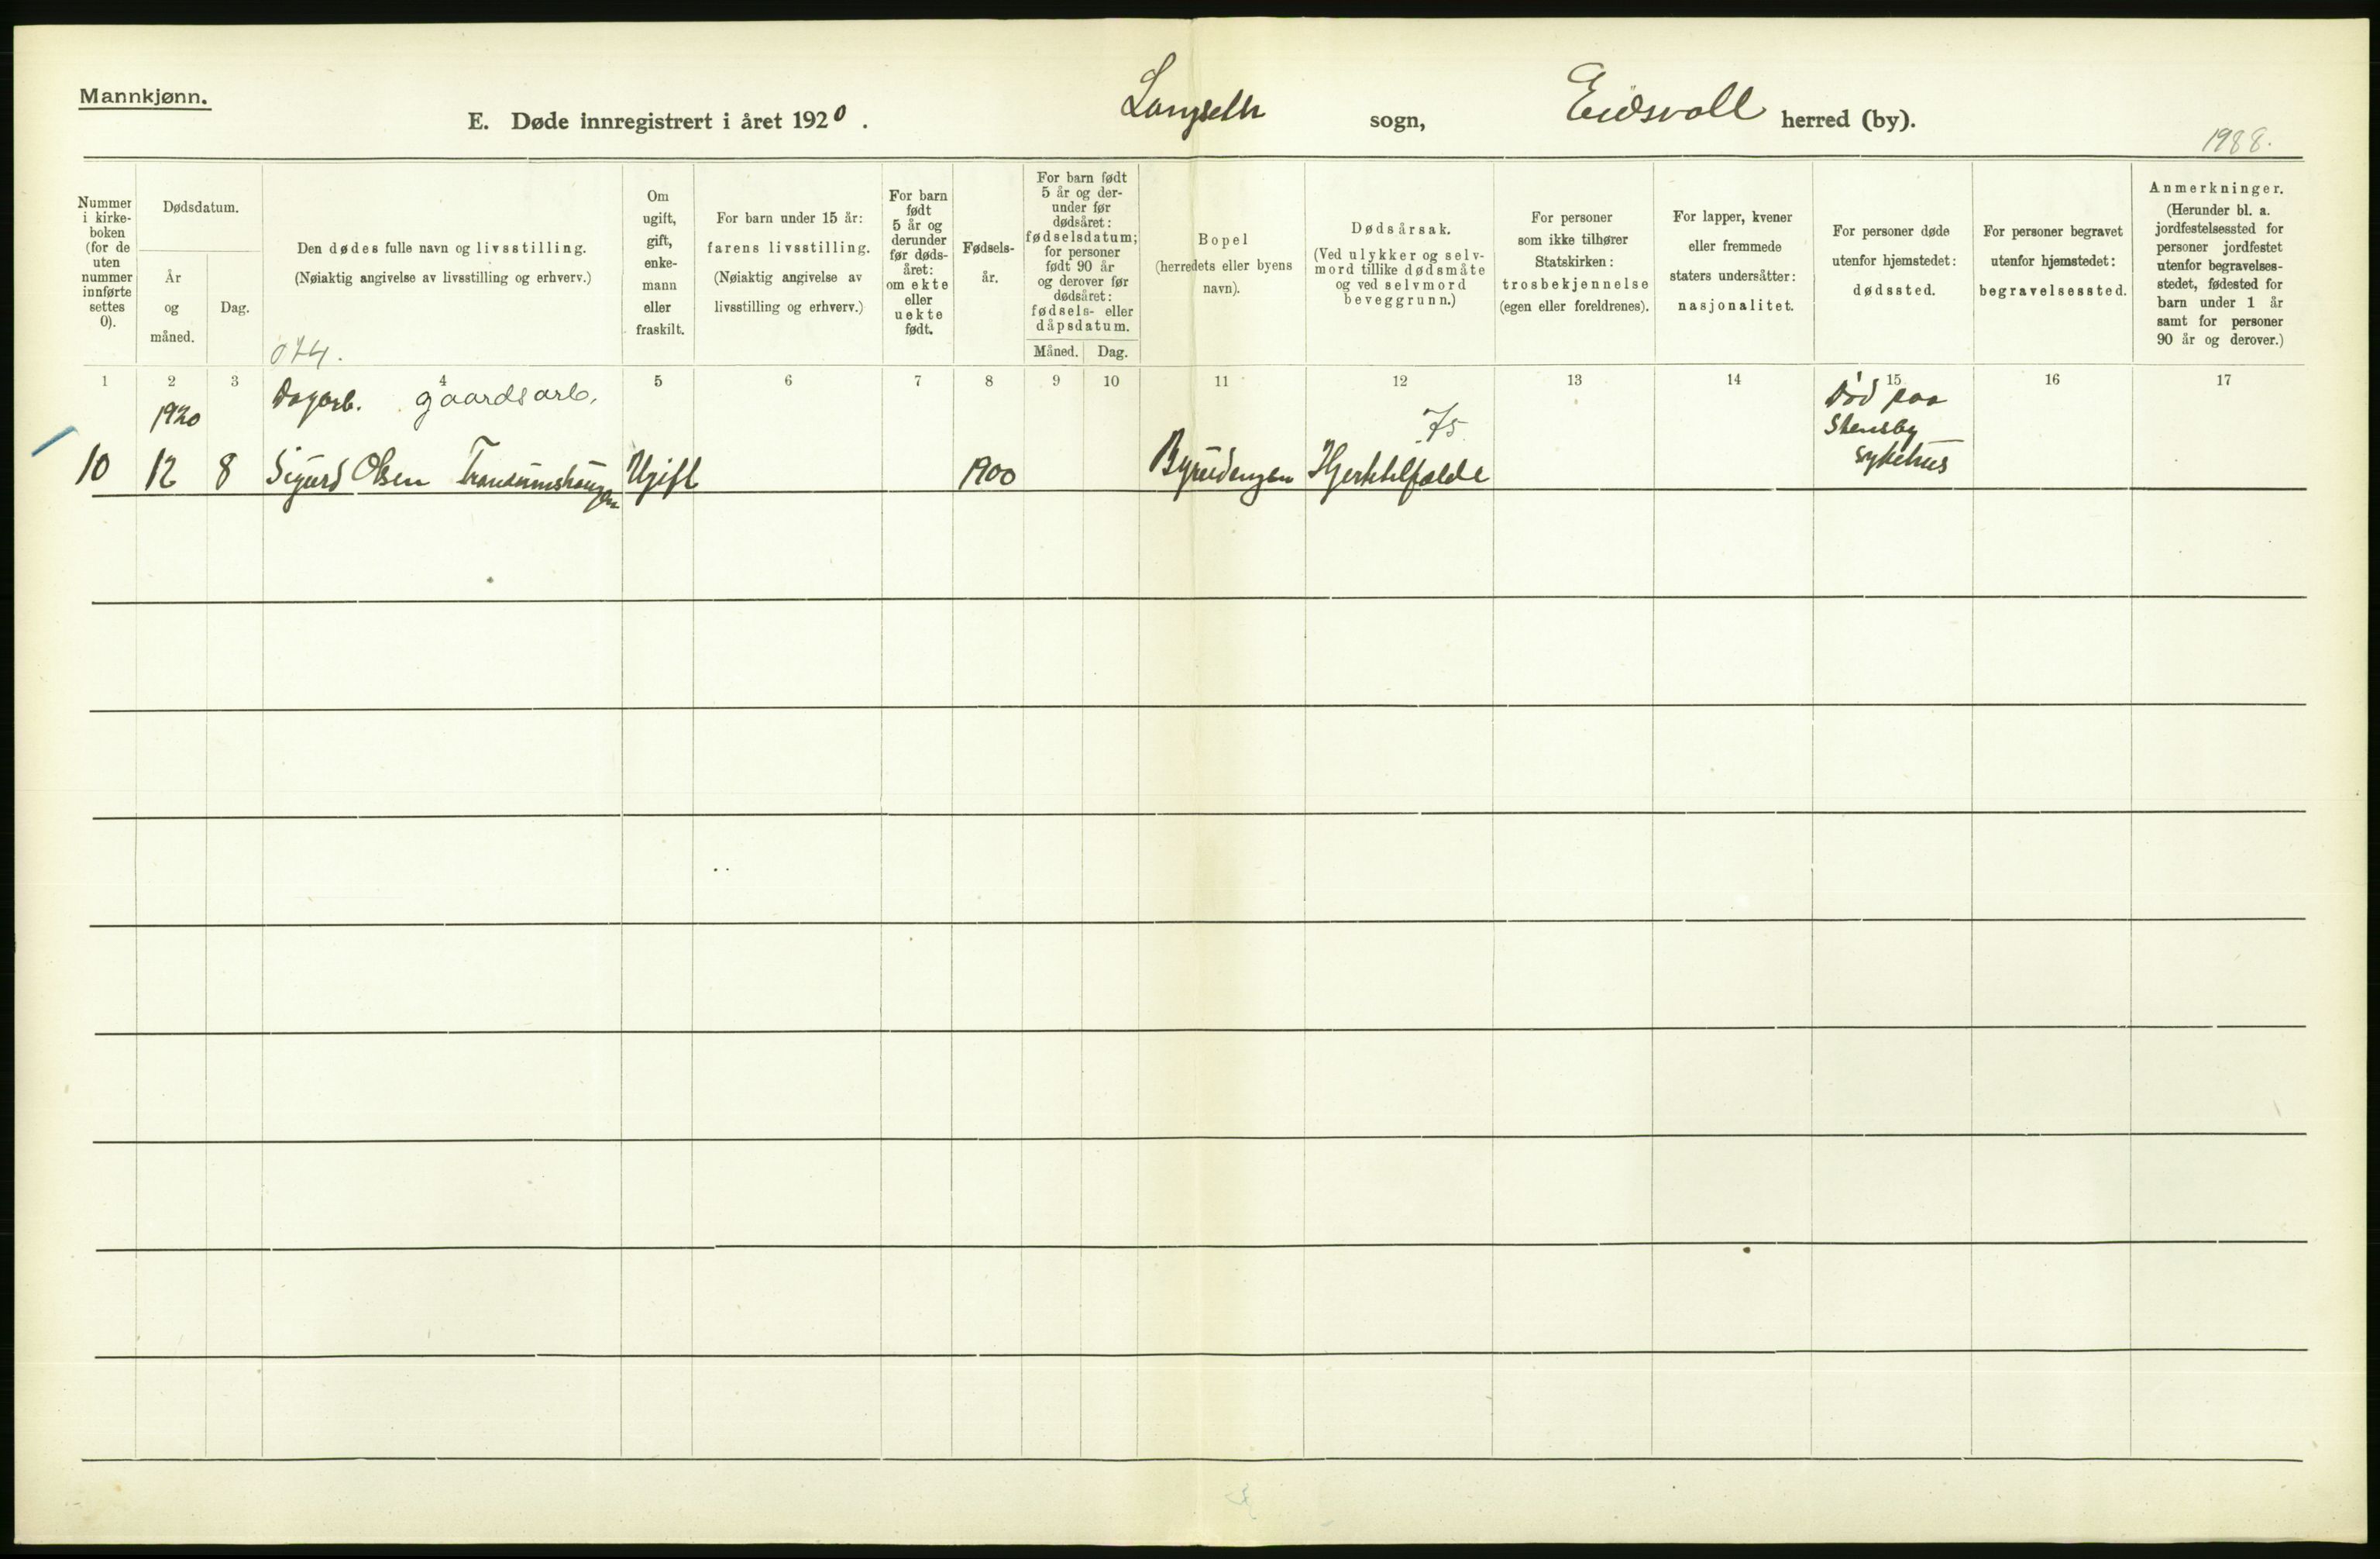 Mannkjønn.
E. Døde innregistrert i året 1920. Langseth sogn, Eidsvoll herred (by).
1988.
Nummer
i kirke-
boken
(for de
uten
nummer
innførte
settes
0).
Dødsdatum.
År
og
måned.
Dag.
Den dødes fulle navn og livsstilling.
(Nøiaktig angivelse av livsstilling og erhverv.)
074.
Om
ugift,
gift,
enke-
mann
eller
fraskilt.
For barn under 15 år:
farens livsstilling.
(Nøiaktig angivelse av
livsstilling og erhverv.)
For barn
født
5 år og
derunder
før døds-
året:
om ekte
eller
uekte
født.
Fødsels-
år.
For barn født
5 år og der-
under før
dødsåret:
fødselsdatum;
for personer
født 90 år
og derover før
dødsåret:
fødsels- eller
dåpsdatum.
Måned. Dag.
Bopel
(herredets eller byens
navn).
Dødsårsak.
(Ved ulykker og selv-
mord tillike dødsmåte
og ved selvmord
beveggrunn.)
For personer
som ikke tilhører
Statskirken:
trosbekjennelse
(egen eller foreldrenes).
For lapper, kvener
eller fremmede
staters undersåtter:
nasjonalitet.
For personer døde
utenfor hjemstedet:
dødssted.
For personer begravet
utenfor hjemstedet:
begravelsessted.
Anmerkninger.
(Herunder bl. a.
jordfestelsessted for
personer jordfestet
utenfor begravelses-
stedet, fødested for
barn under 1 år
samt for personer
90 år og derover.)
1 2 3 4 5 6 7 8 9 10 11 12 13 14 15 16 17
1920
Dagarb. gaardsarb.
75
Død paa
Stensby
sykehus
10 12 8 Sigurd Olsen Trandumshaugen Ugift 1900 Hjerteklfalde